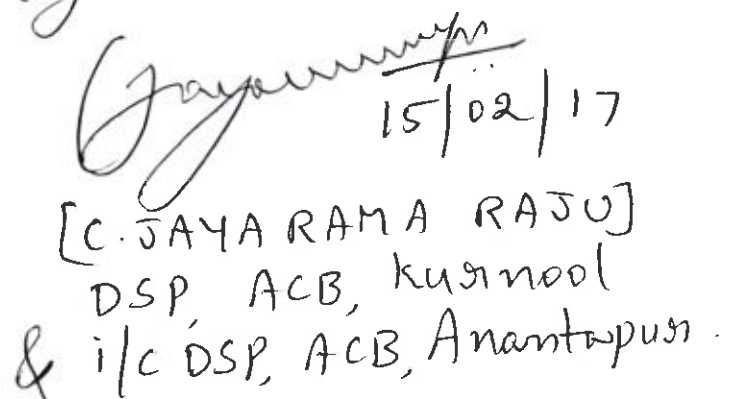 15/02/17
[C. JAYARAMA RAJU]
DSP, ACB, Kurnool
& i/c DSP, ACB, Anantapur.